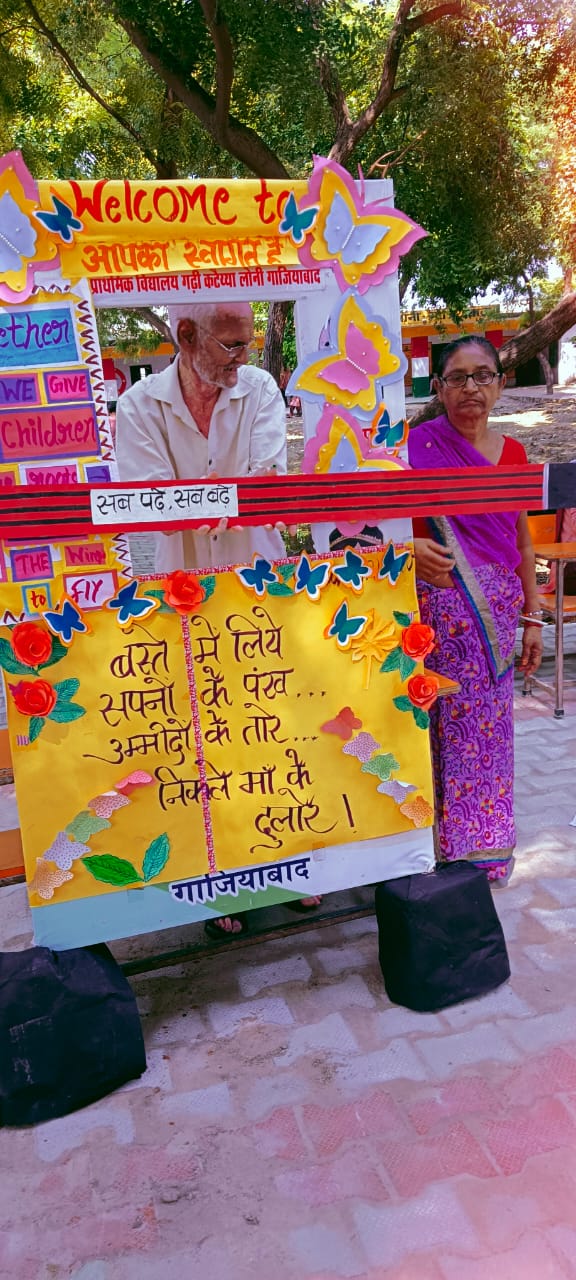 Welcome to
आपका स्वागत है
प्राथमिक विद्यालय गढ़ी कटैय्या लोनी गाजियाबाद
ether
WE GIVE
Children
सब पढ़े, सब बढ़े
THE Wings
to FLY
बस्ते में लिये
सपनों के पंख...
उम्मीदों के तारे...
निकले माँ के
दुलारे !
गाजियाबाद